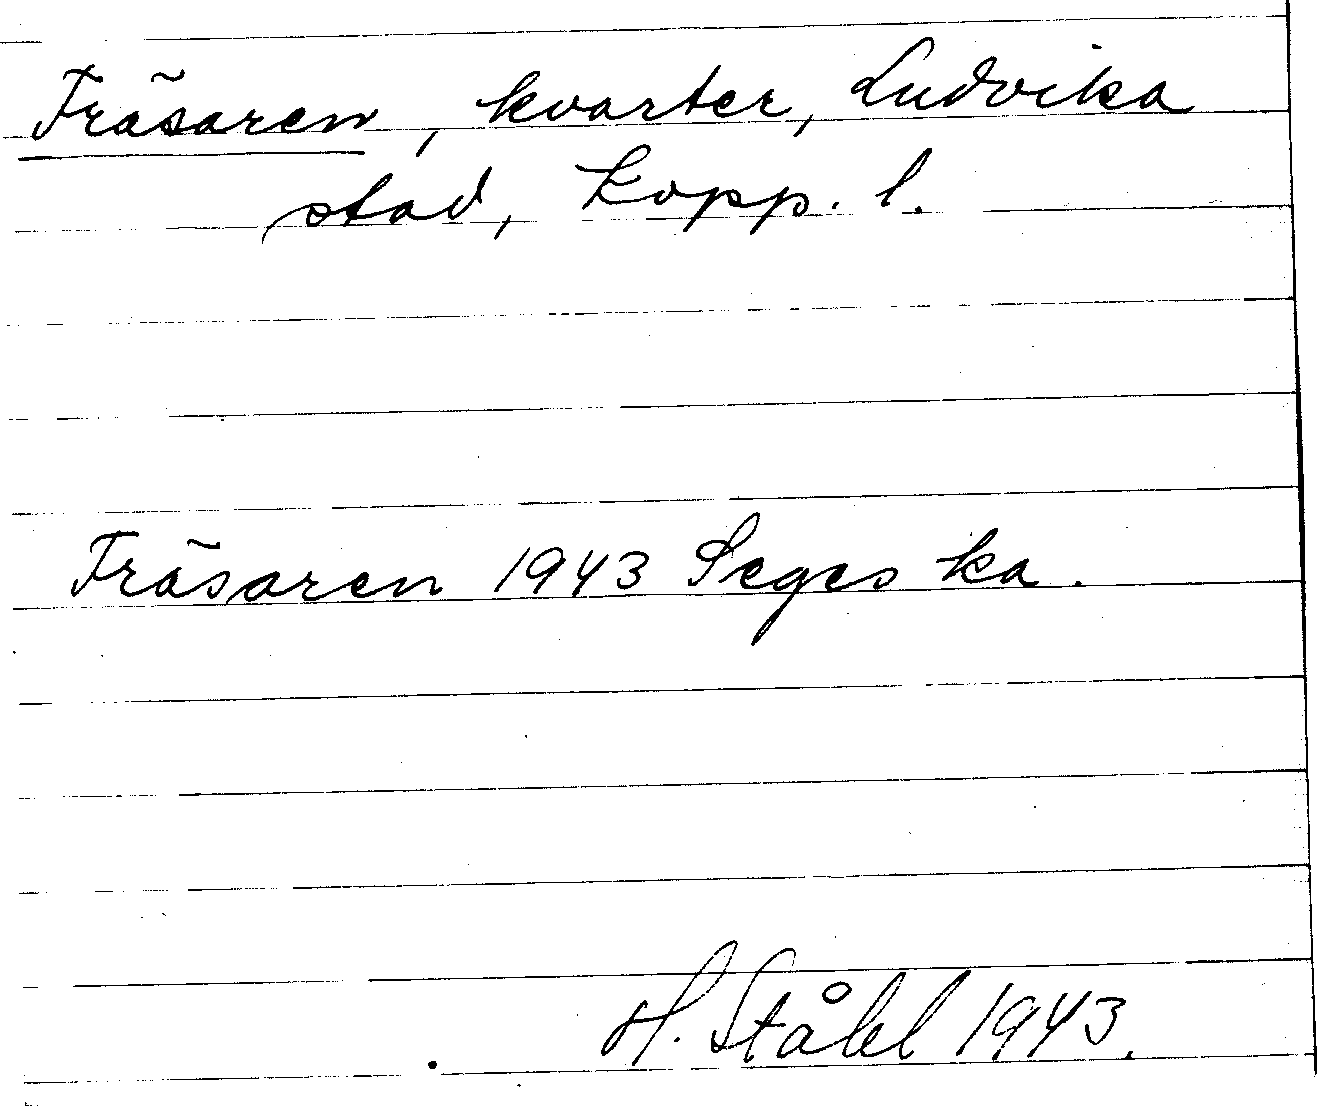 Fräsaren, kvarter, Ludvika
stad, Kopp. l.
Fräsaren 1943 Seges ka.
H. Ståhl 1943.